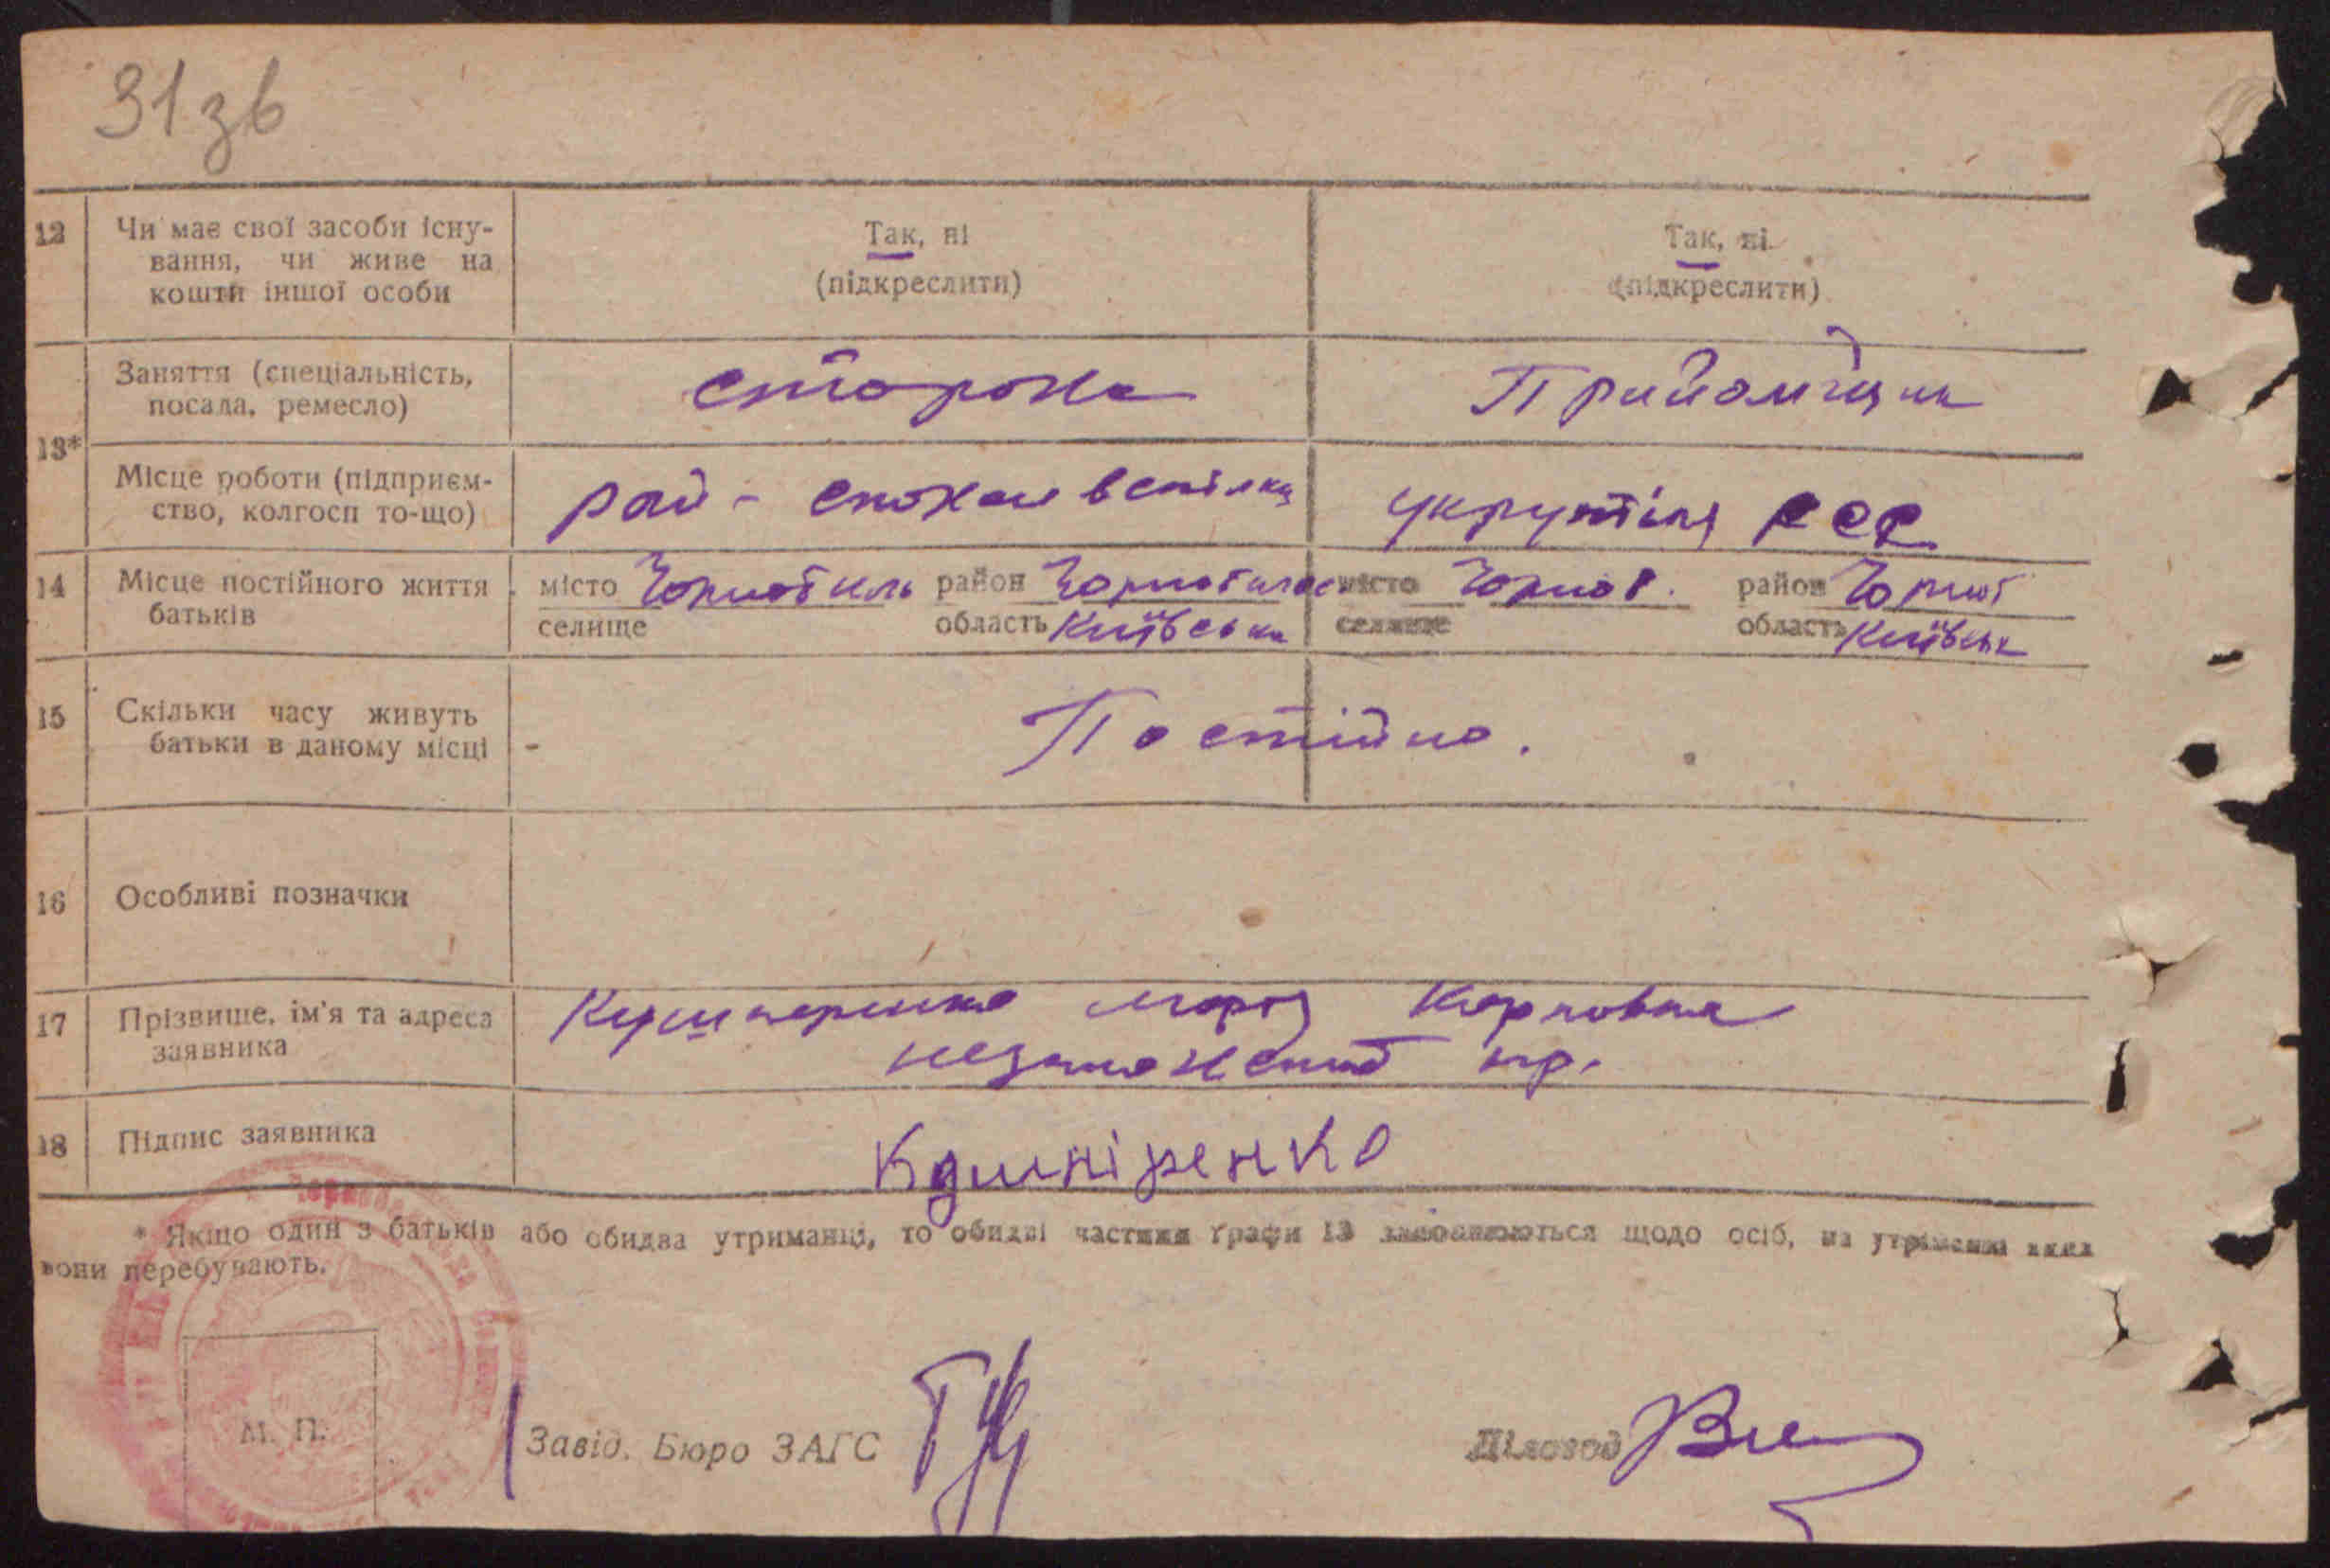 31зв
12 Чи має свої засоби існу-
вання, чи живе на
кошти іншої особи
Так, ні
(підкреслити)
Так, ні
(підкреслити)
13*
Заняття (спеціальність,
посада, ремесло)
сторож
Прийомщик
Місце роботи (підприєм-
ство, колгосп то-що)
рай-спожив спілка
14 Місце постійного життя
батьків
місто Чорнобиль район Чорнобильс
селище область Київська
місто Чорноб. район Чорноб
селище область Київськ
15 Скільки часу живуть
батьки в даному місці
- Постійно.
16 Особливі позначки
17 Прізвище, ім'я та адреса
заявника
Кушнеренко Карповна
18 Підпис заявника
Кушніренко
* Якщо один з батьків або обидва утриманці, то обидві частини графи 13 заповнюються щодо осіб, на утриманні яких
вони перебувають.
М. П.
Завід. Бюро ЗАГС
Діловод